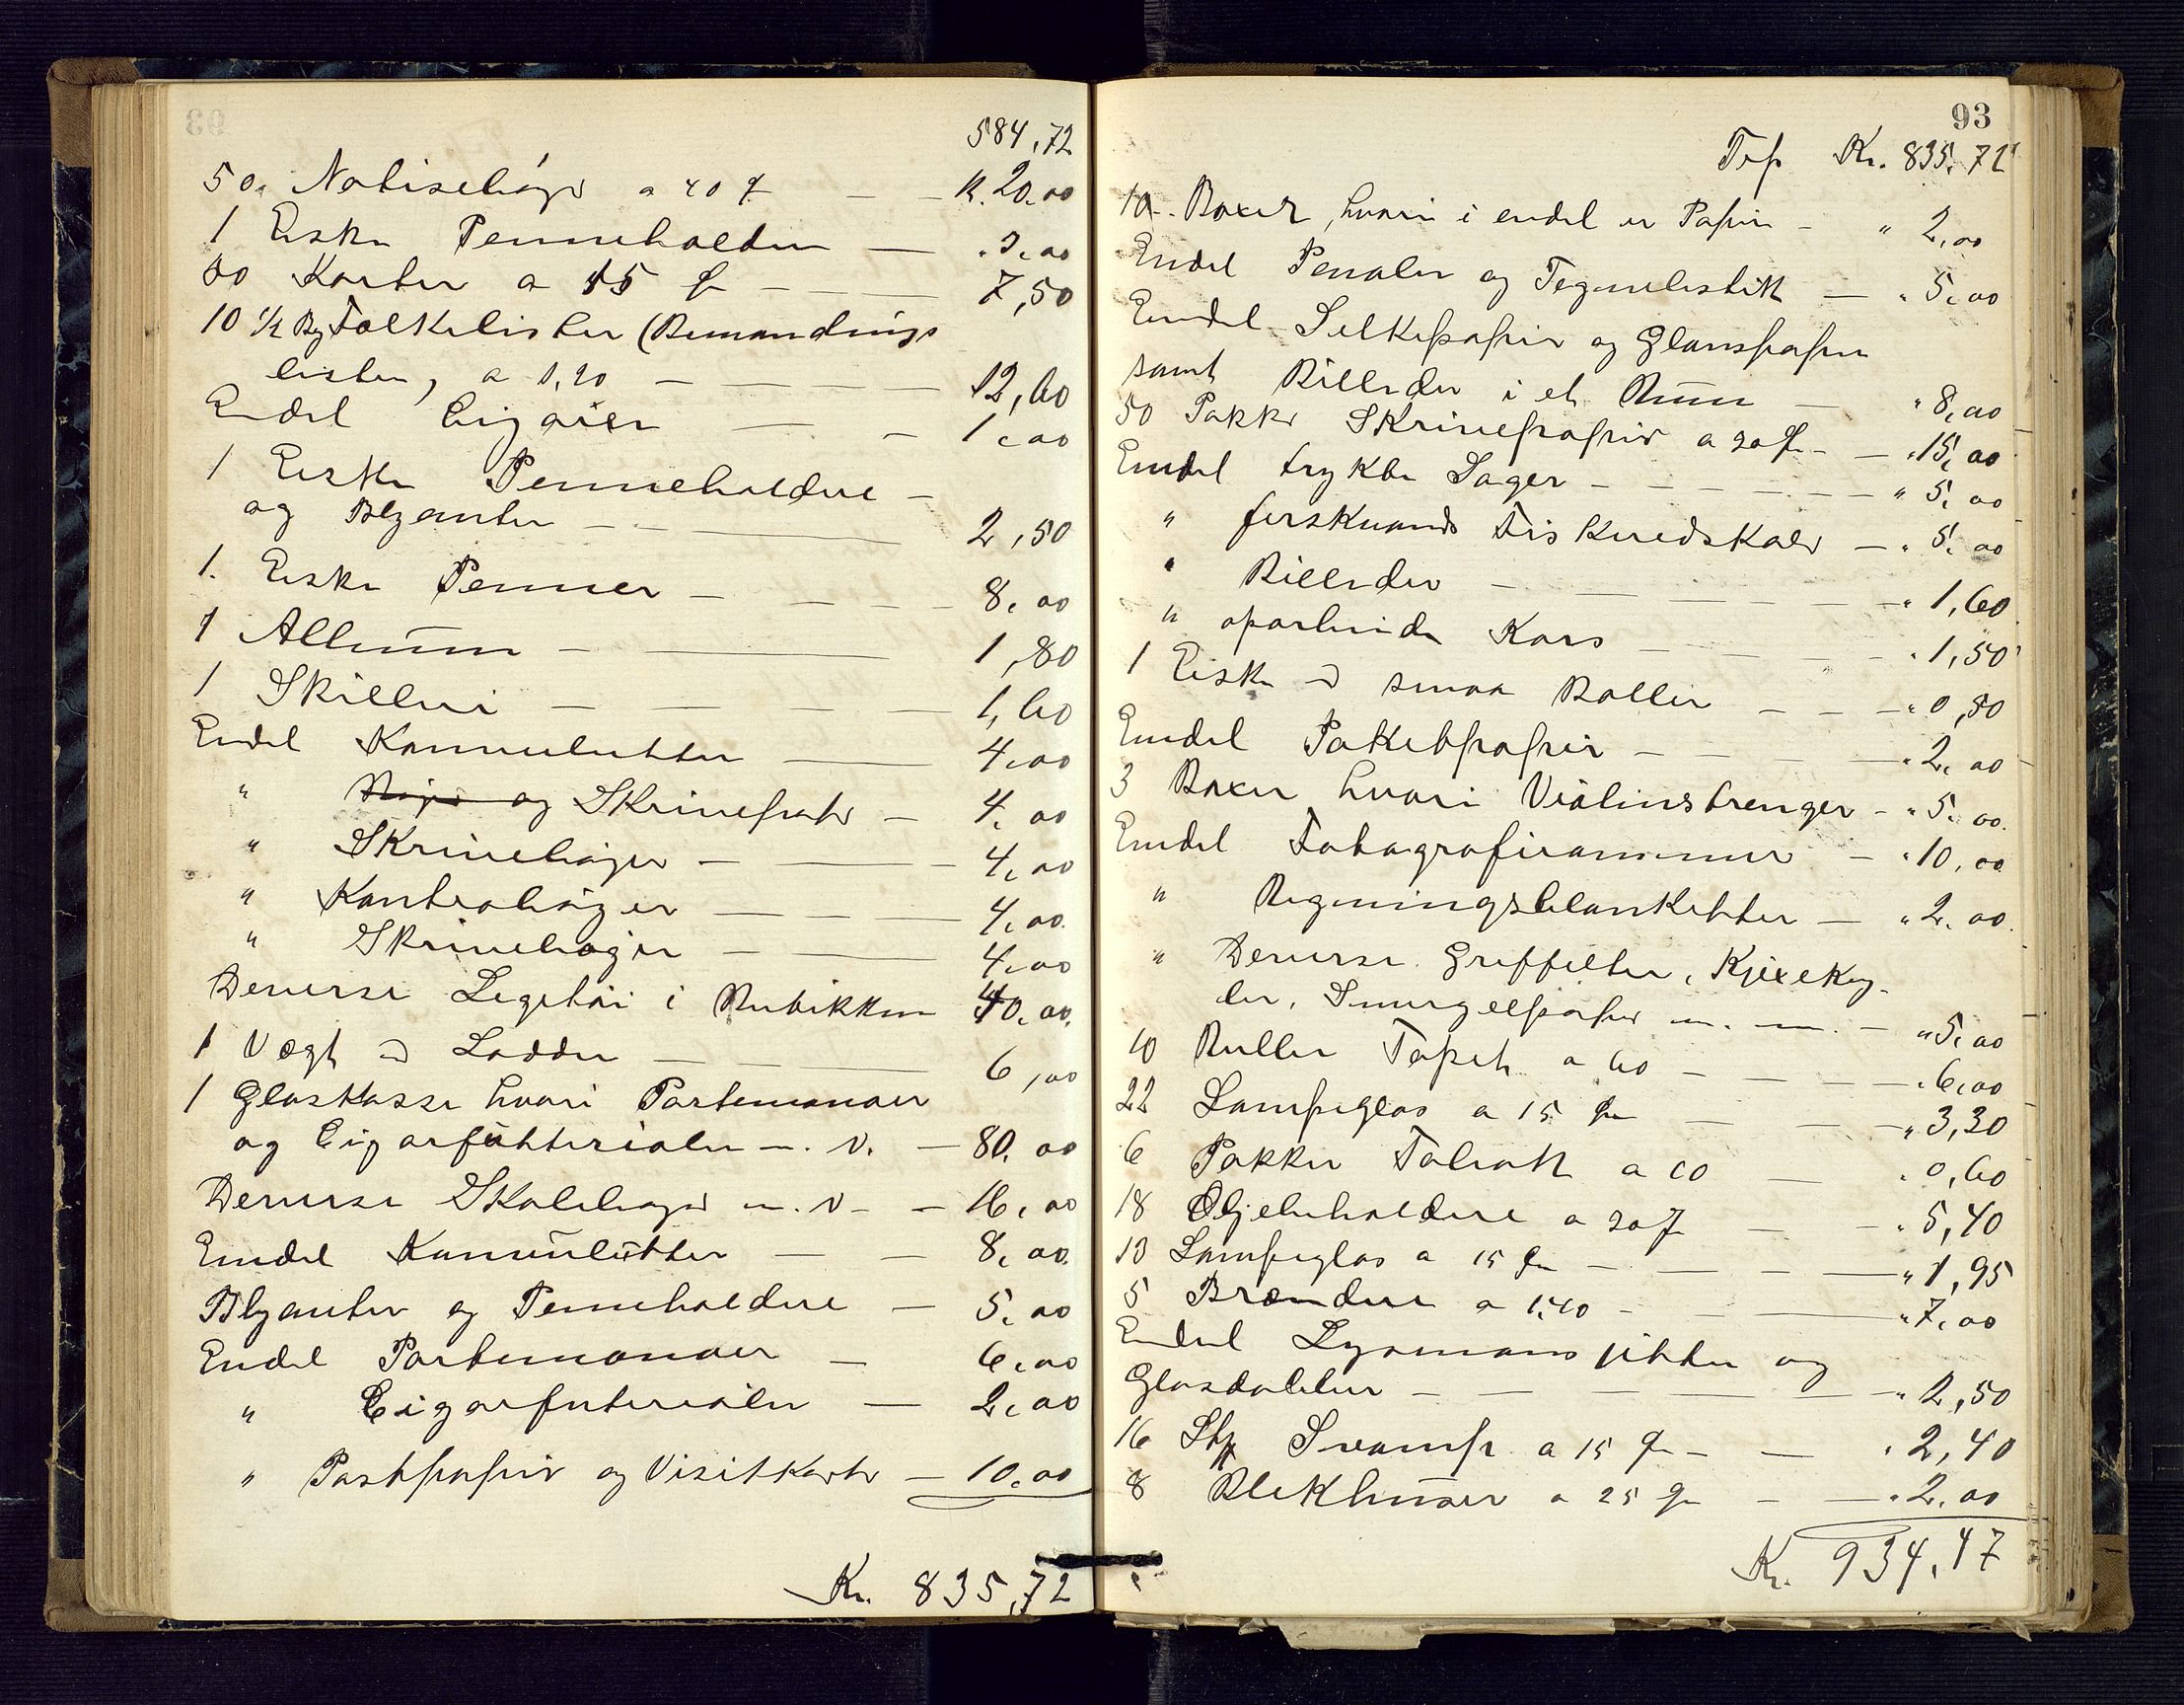 584,72
50 Notisebøger a 40 ø — 20.00
1 Eske Penneholdere — 3.00
50 Karter a 15 ø — 7,50
10 ½ Bg Folkelister (Bemandings
lister, a 1,20 — 12,60
Endel Cigarer — 1.00
1 Eske Penneholdere —
og Blyanter — 2,50
1. Eske Penner — 8.00
1 Album — 1,80
1 Skilleri — 1,60
Endel Konvolutter — 4.00
" og Skrivepapir — 4.00
" Skrivebøger — 4.00
" Kontrabøger — 4.00
" Skrivebøger — 4.00
Diverse Legetøi i Butikken 40.00
1 Vægt m Lodder — 6,00
1 Glaskasse hvori Portemonaer
og Cigarfutterialer m. v. — 80.00
Diverse Skolebøger m. v — 16.00
Endel Konvolutter — 8.00
Blyanter og Penneholdere — 5.00
Endel Portemonaer — 6.00
" Cigarfuterialer — 2.00
" Postpapir og Visitkort — 10.00
Kr. 835,72
93
Trp Kr. 835.72
10 Boxer, hvori i endel er Papir — " 2.00
Endel Penaler og Tegnebestik — " 5.00
Endel Silkepapir og Glanspapir
samt Billeder i et Rum — " 8.00
50 Pakker Skrivepapir a 30 ø — " 15.00
Endel trykte Sager — " 5.00
" ferskvands Fiskeredskaber — " 5.00
" Billeder — " 1,60
" oparbeidede Kors — " 1,50
1 Eske m smaa Boller — " 0,50
Endel Paketpapir — " 2.00
3 Boxer hvori Violinstrenger — " 5.00
Endel Fotografirammer — " 10.00
" Regningsblanketter — " 2.00
" Diverse Griffelter, Kjixekug-
ler, Smergelpapir m. m. — " 5.00
10 Ruller Tapet a 60 — " 6.00
22 Lampeglas a 15 ø — " 3,30
6 Pakker Tobak a 10 — " 0,60
18 Oljebeholdere a 30 ø — " 5,40
13 Lampeglas a 15 ø — " 1,95
5 Brændere a 1,40 — " 7.00
Endel Lysmansjetter og
Glasdobber — " 2,50
16 Stk Svamp a 15 ø — " 2,40
8 Blekhuser a 25 ø — " 2.00
Kr. 934,47